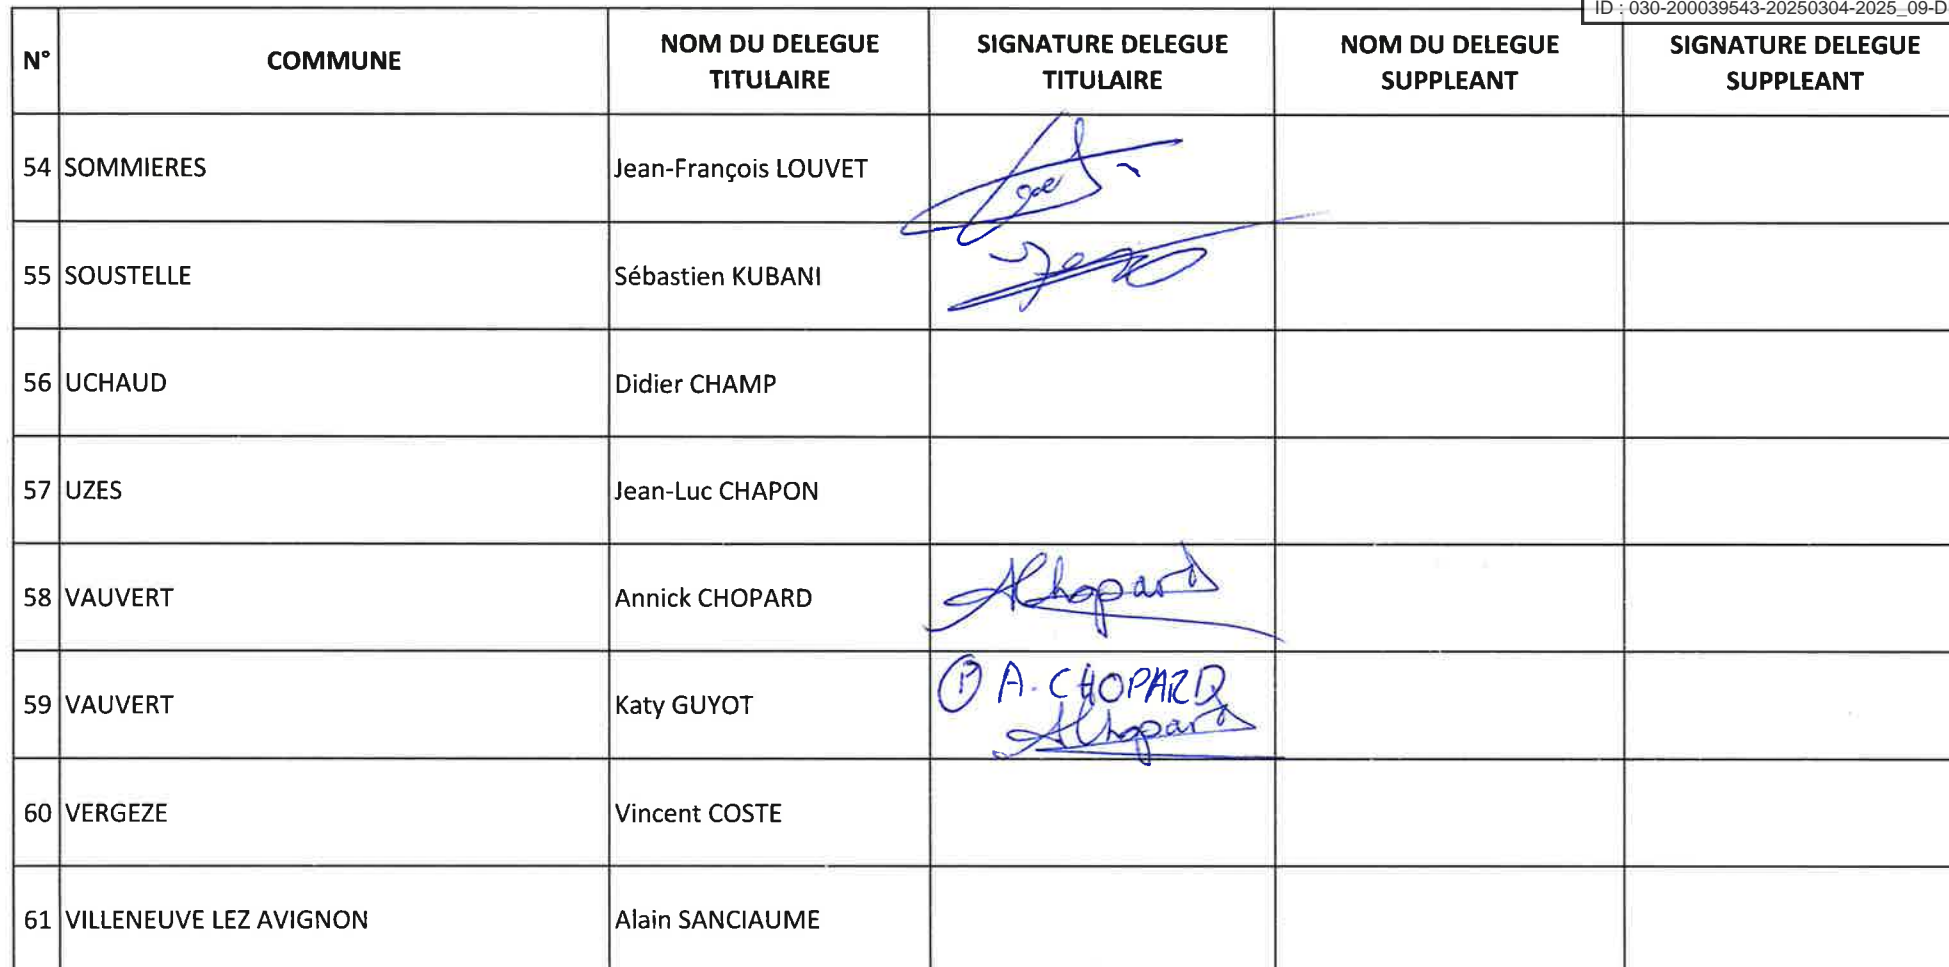 ID : 030-200039543-20250304-2025_09-D
N° COMMUNE NOM DU DELEGUE TITULAIRE SIGNATURE DELEGUE TITULAIRE NOM DU DELEGUE SUPPLEANT SIGNATURE DELEGUE SUPPLEANT
54 SOMMIERES Jean-François LOUVET
55 SOUSTELLE Sébastien KUBANI
56 UCHAUD Didier CHAMP
57 UZES Jean-Luc CHAPON
58 VAUVERT Annick CHOPARD AChopard
59 VAUVERT Katy GUYOT P A. CHOPARD
AChopard
60 VERGEZE Vincent COSTE
61 VILLENEUVE LEZ AVIGNON Alain SANCIAUME